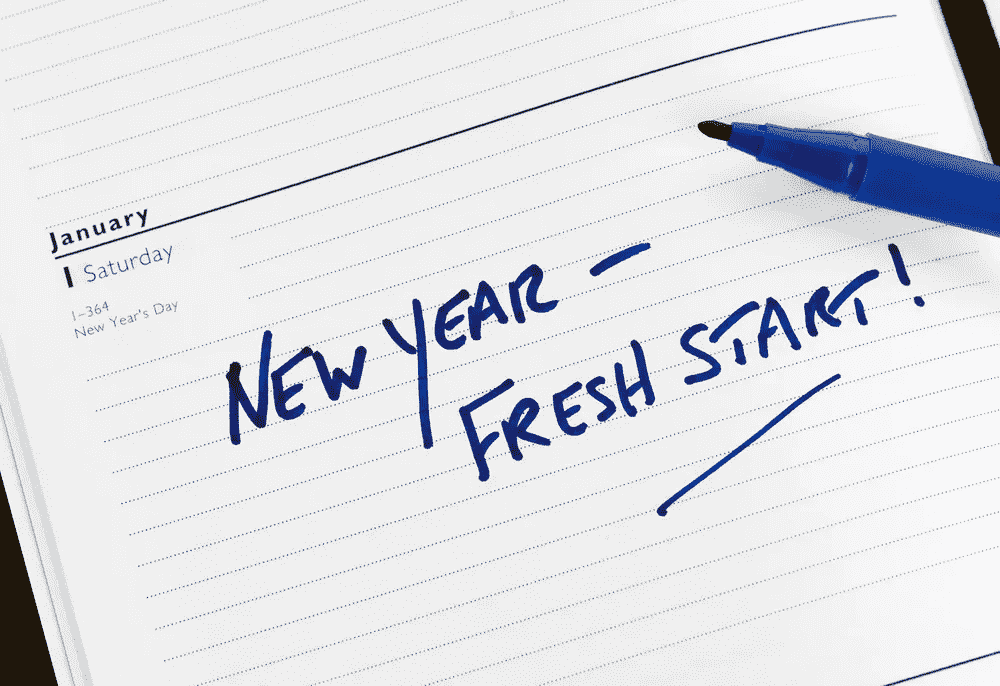 January
1 Saturday
1–364
New Year's Day
NEW YEAR –
FRESH START!